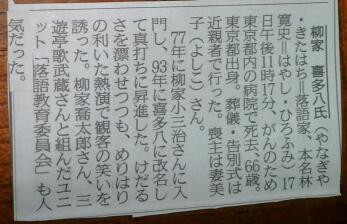 柳家 喜多八氏(やなぎや
・きたはち=落語家、本名林
寛史=はやし・ひろふみ)17
日午後11時17分、がんのため
東京都内の病院で死去、66歳。
東京都出身。葬儀・告別式は
近親者で行った。喪主は妻美
子(よしこ)さん。
77年に柳家小三治さんに入
門し、93年に喜多八に改名し
て真打ちに昇進した。けだる
さを漂わせつつも、めりはり
の利いた熱演で観客の笑いを
誘った。柳家喬太郎さん、三
遊亭歌武蔵さんと組んだユニ
ット「落語教育委員会」も人
気だった。